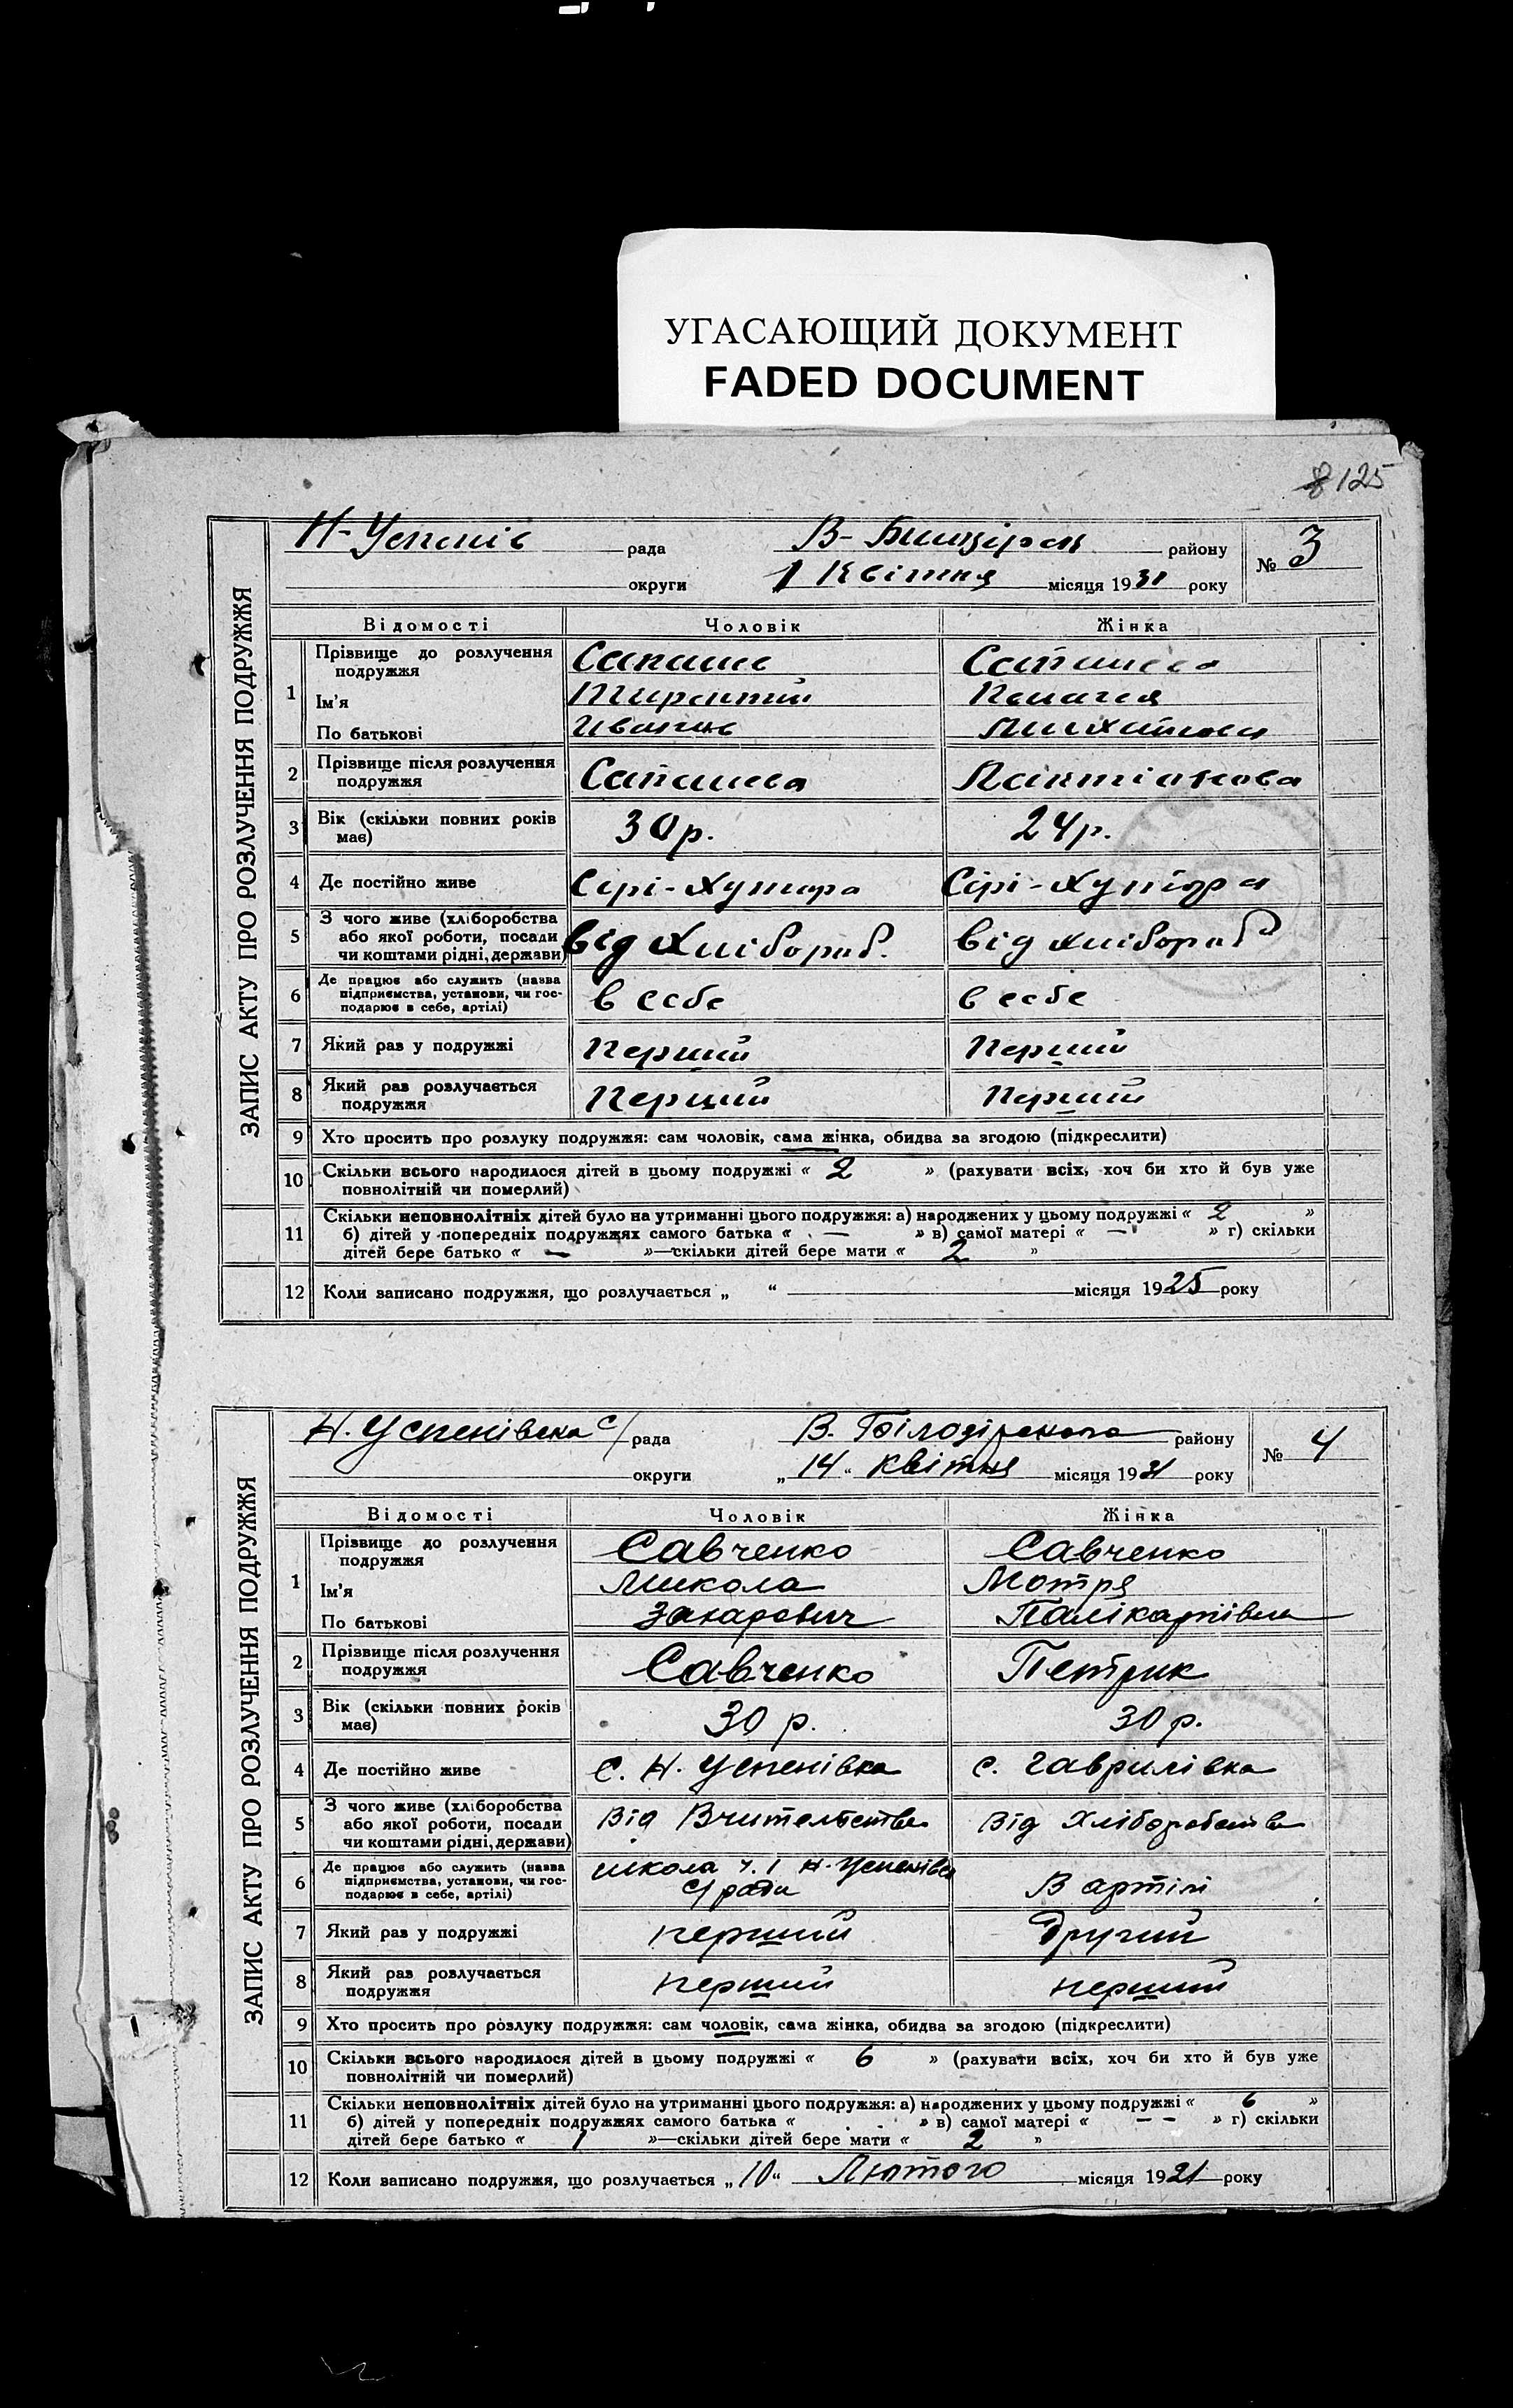 УГАСАЮЩИЙ ДОКУМЕНТ
FADED DOCUMENT
125
ЗАПИС АКТУ ПРО РОЗЛУЧЕННЯ ПОДРУЖЖЯ
Н-Успенів рада В- району
№ 3
округи 1 Квітня місяця 1931 року
Відомості Чоловік Жінка
1 Прізвище до розлучення
подружжя
Ім'я Пелагея
По батькові
2 Прізвище після розлучення
подружжя Сапашева Лактіонова
3 Вік (скільки повних років
має) 30р. 24р.
4 Де постійно живе Сірі-Хутора Сірі-Хутора
5 З чого живе (хліборобства
або якої роботи, посади
чи коштами рідні, держави) від Хлібороб. від хлібороб
6 Де працює або служить (назва
підприємства, установи, чи гос-
подарює в себе, артілі) в себе в себе
7 Який раз у подружжі Перший Перший
8 Який раз розлучається
подружжя Перший Перший
9 Хто просить про розлуку подружжя: сам чоловік, сама жінка, обидва за згодою (підкреслити)
10 Скільки всього народилося дітей в цьому подружжі « 2 » (рахувати всіх, хоч би хто й був уже
повнолітній чи померлий)
11 Скільки неповнолітніх дітей було на утриманні цього подружжя: а) народжених у цьому подружжі « 2 »
б) дітей у попередніх подружжях самого батька « — » в) самої матері « — » г) скільки
дітей бере батько « — »—скільки дітей бере мати « 2 »
12 Коли записано подружжя, що розлучається „ “ місяця 1925 року
ЗАПИС АКТУ ПРО РОЗЛУЧЕННЯ ПОДРУЖЖЯ
Н. Успенівська с/рада В. Білозірського району
№ 4
округи „14“ квітня місяця 1931 року
Відомості Чоловік Жінка
1 Прізвище до розлучення
подружжя Савченко Савченко
Ім'я Микола Мотря
По батькові Захарович Палікарпівна
2 Прізвище після розлучення
подружжя Савченко Петрик
3 Вік (скільки повних років
має) 30 р. 30 р.
4 Де постійно живе с. Н. Успенівка с. Гаврилівка
5 З чого живе (хліборобства
або якої роботи, посади
чи коштами рідні, держави) Від Вчительства Від Хліборобства
6 Де працює або служить (назва
підприємства, установи, чи гос-
подарює в себе, артілі) школа ч. 1 Н. Успенівс
с/ради В артілі
7 Який раз у подружжі перший Другий
8 Який раз розлучається
подружжя перший перший
9 Хто просить про розлуку подружжя: сам чоловік, сама жінка, обидва за згодою (підкреслити)
10 Скільки всього народилося дітей в цьому подружжі « 6 » (рахувати всіх, хоч би хто й був уже
повнолітній чи померлий)
11 Скільки неповнолітніх дітей було на утриманні цього подружжя: а) народжених у цьому подружжі « 6 »
б) дітей у попередніх подружжях самого батька « » в) самої матері « — — » г) скільки
дітей бере батько « 1 »—скільки дітей бере мати « 2 »
12 Коли записано подружжя, що розлучається „10“ Лютого місяця 1921 року